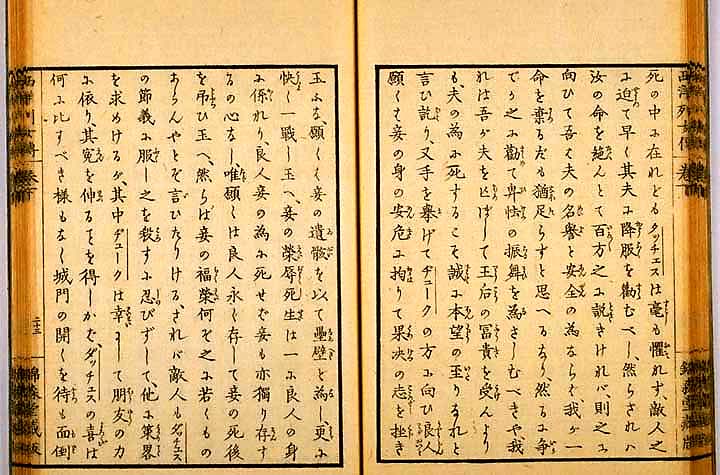 死の中に在れどもダッチェスは毫も懼れず、敵人之
に迫て早く其夫に降服を勧むべし、然らざれハ
汝の命を絶んとて百方之に説きけれバ、則之に
向ひて吾ハ夫の名譽と安全の為ならバ、我が一
命を棄るだも猶足らずと思へるなり然るに争
でか之に勧て卑怯の振舞を為さしむべきや我
れは吾が夫を亡ばして王后の冨貴を受んより
も、夫の為に死するこそ誠に本望の至りなれと
言ひ訖り、又手を擧げてヂュークの方に向ひ良人
願くは妾の身の安危に拘りて果决の志を挫き
玉ふな、願くハ妾の遺骸を以て壘壁と為し更に
快く一戰し玉へ、妾の榮辱死生は一に良人の身
に係れり、良人妾の為に死せバ妾も亦獨り存す
るの心なし、唯願くは良人永く存して妾の死後
を弔ひ玉へ、然らば妾の福榮何そ之に若くもの
あらんやとぞ言ひたりける、されバ敵人もダッチェス
の節義に服し之を殺すに忍びずして、他に策畧
を求めけるが、其中ヂュークは幸にして朋友の力
に依り、其寃を伸るとを得しかバ、ダッチェスの喜ば
何に比すべき様もなし城門の開くを待も面倒
西洋列女傳 卷下
二十三
錦森堂藏版